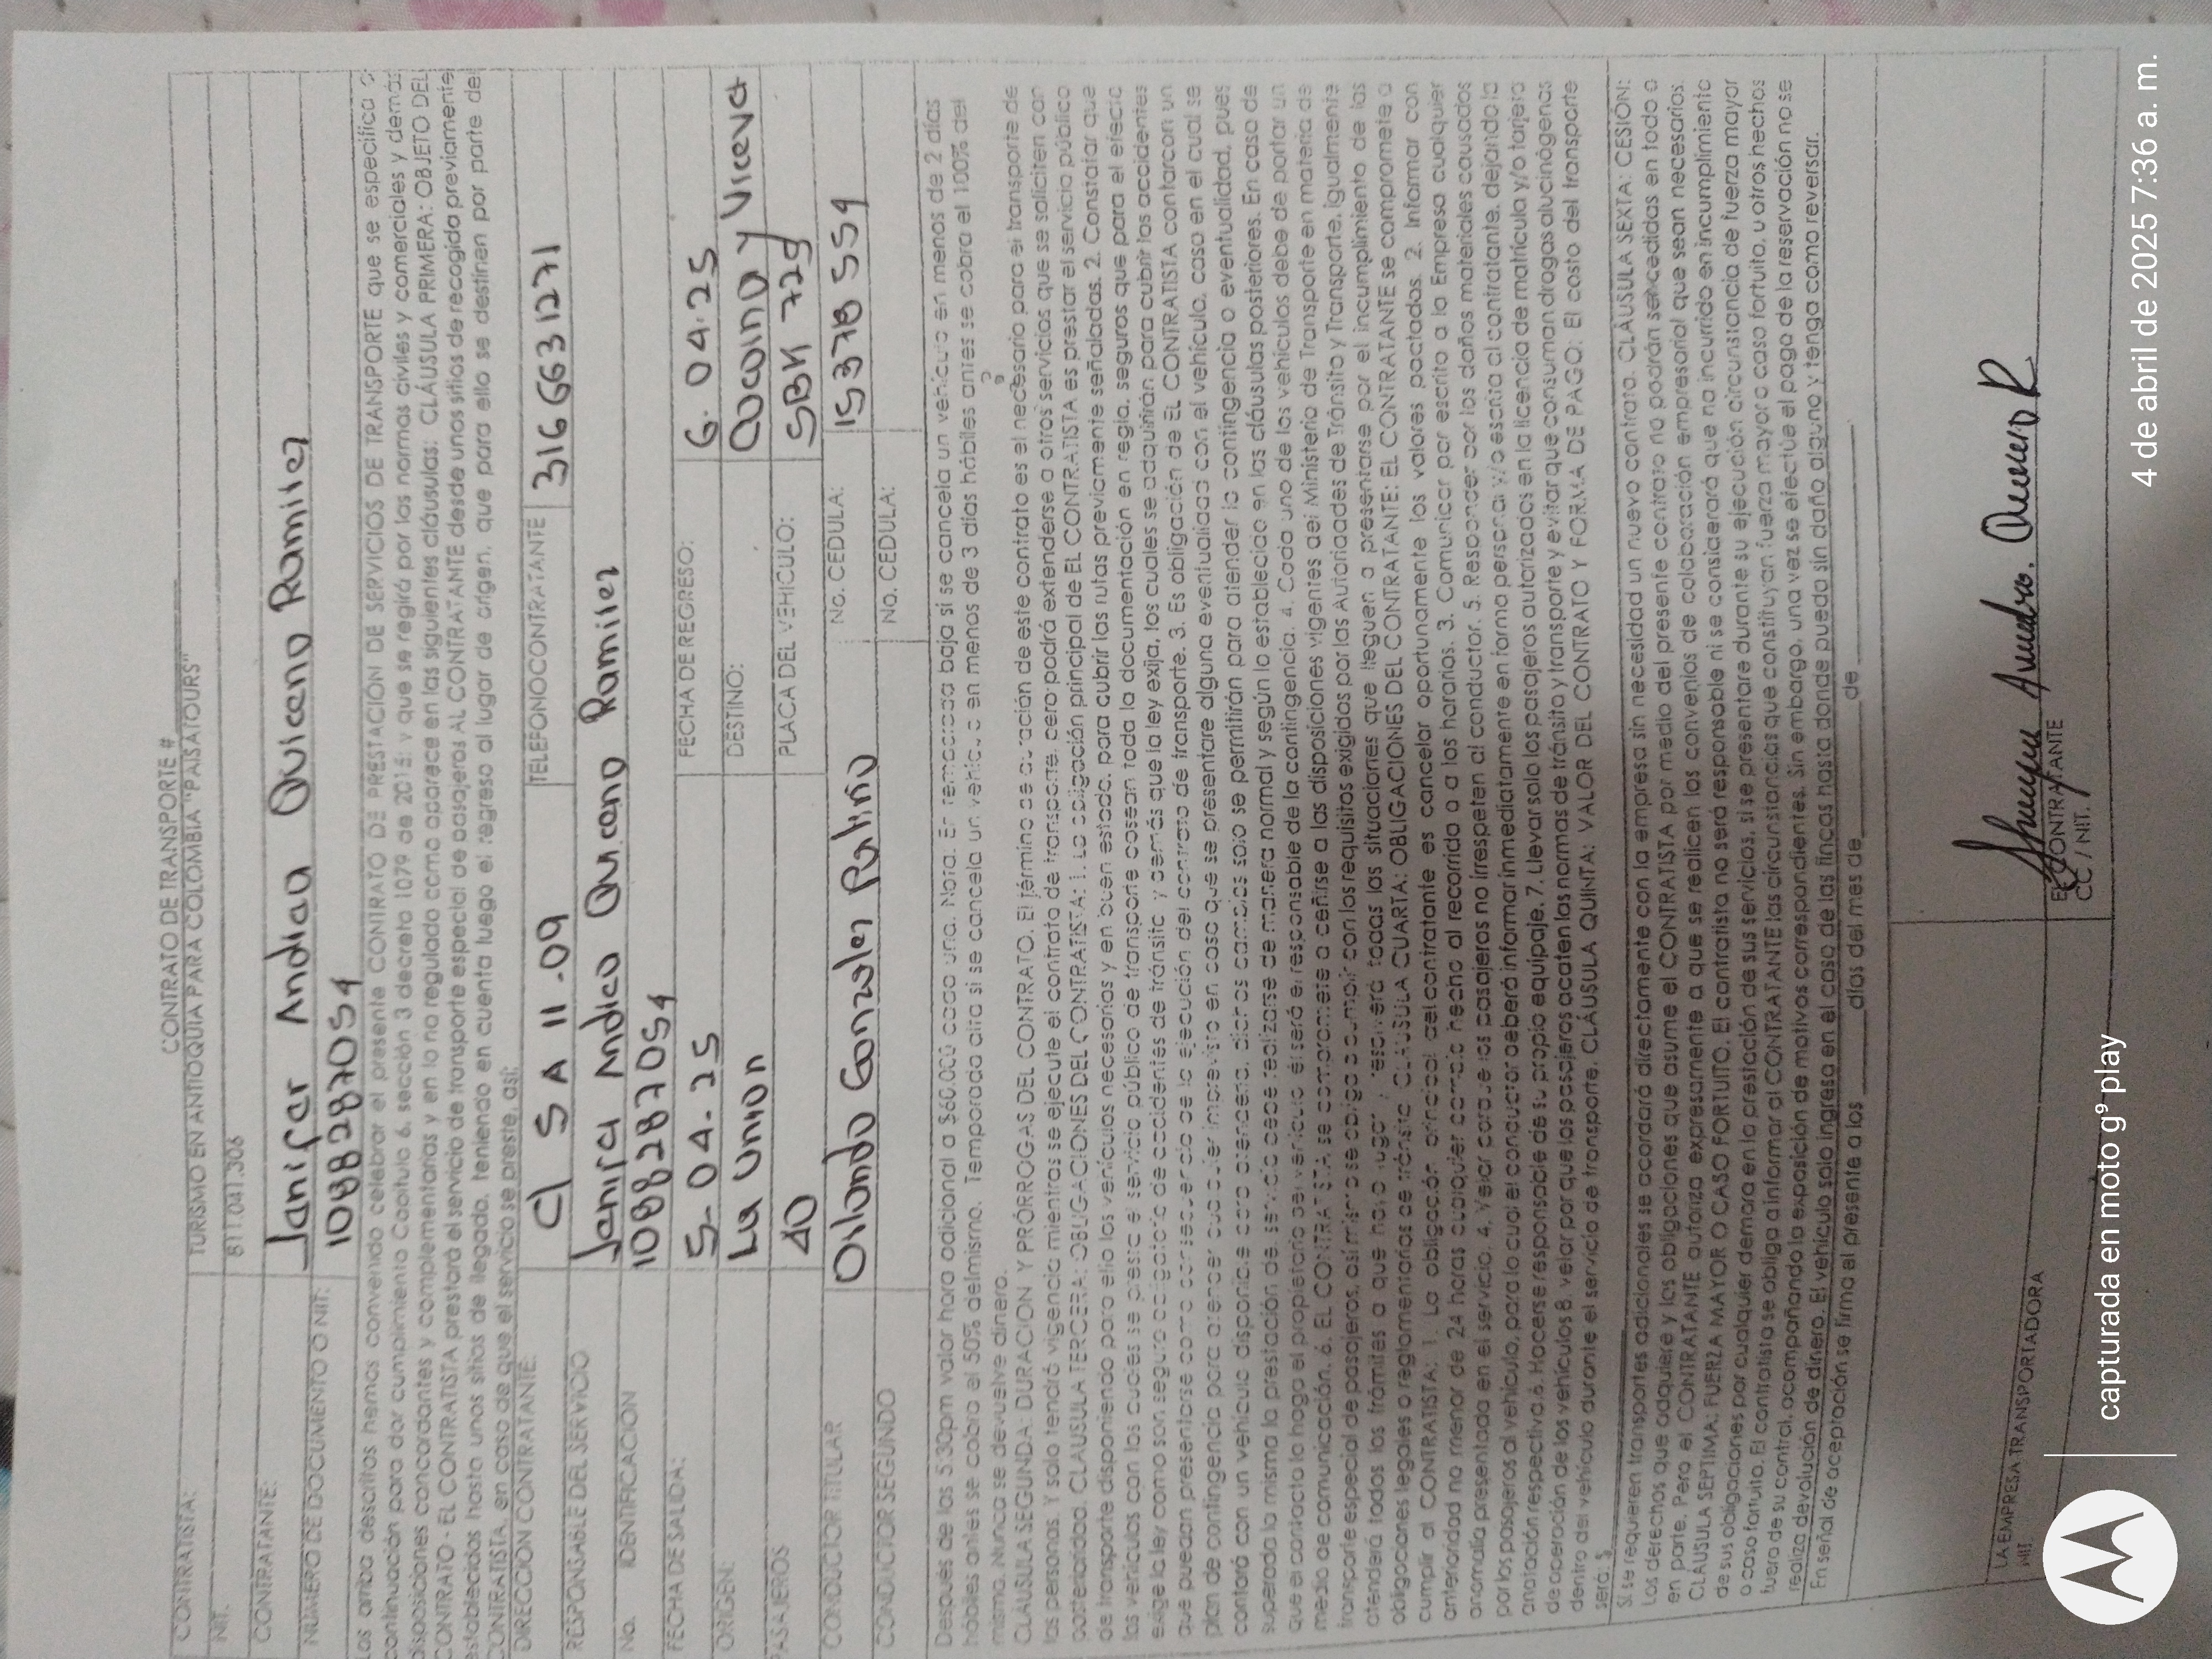 CONTRATO DE TRANSPORTE #
CONTRATISTA: TURISMO EN ANTIOQUIA PARA COLOMBIA "PAISATOURS"
NIT. 811.041.306
CONTRATANTE: Janifer Andrea Quiceno Ramirez
NÚMERO DE DOCUMENTO O NIT: 1088287054
Los arriba descritos hemos convenido celebrar el presente CONTRATO DE PRESTACIÓN DE SERVICIOS DE TRANSPORTE que se especifica a
continuación para dar cumplimiento Capítulo 6, sección 3 decreto 1079 de 2015; y que se regirá por las normas civiles y comerciales y demás
disposiciones concordantes y complementarias y en lo no regulado como aparece en las siguientes cláusulas: CLÁUSULA PRIMERA: OBJETO DEL
CONTRATO - EL CONTRATISTA prestará el servicio de transporte especial de pasajeros AL CONTRATANTE desde unos sitios de recogida previamente
establecidos hasta unos sitios de llegada, teniendo en cuenta luego el regreso al lugar de origen, que para ello se destinen por parte del
CONTRATISTA, en caso de que el servicio se preste, así:
DIRECCIÓN CONTRATANTE: Cl 5 A 11.09 TELEFONO CONTRATANTE 3166631271
RESPONSABLE DEL SERVICIO Andrea Quiceno Ramirez
No. IDENTIFICACION 1088287054
FECHA DE SALIDA: 5-04-25 FECHA DE REGRESO: 6.04.25
ORIGEN: La Union DESTINO: y Viceva
PASAJEROS 40 PLACA DEL VEHICULO: SBK 729
CONDUCTOR TITULAR Orlando Gonzalez Patiño No. CEDULA: 15378554
CONDUCTOR SEGUNDO No. CEDULA:
Después de las 5:30pm valor hora adicional a $60.000 cada una. Nota: En temporada baja si se cancela un vehículo en menos de 2 días
hábiles antes se cobra el 50% del mismo. Temporada alta si se cancela un vehículo en menos de 3 días hábiles antes se cobra el 100% del
mismo. Nunca se devuelve dinero.
CLÁUSULA SEGUNDA: DURACIÓN Y PRÓRROGAS DEL CONTRATO. El término de duración de este contrato es el necesario para el transporte de
las personas. Y solo tendrá vigencia mientras se ejecute el contrato de transporte, pero podrá extenderse a otros servicios que se soliciten con
posterioridad. CLAUSULA TERCERA: OBLIGACIONES DEL CONTRATISTA: 1. La obligación principal de EL CONTRATISTA es prestar el servicio público
de transporte disponiendo para ello los vehículos necesarios y en buen estado, para cubrir las rutas previamente señaladas. 2. Constatar que
los vehículos con los cuales se preste el servicio público de transporte posean toda la documentación en regla, seguros que para el efecto
exige la ley como son seguro obligatorio de accidentes de tránsito y demás que la ley exija, los cuales se adquirirán para cubrir los accidentes
que puedan presentarse como consecuencia de la ejecución del contrato de transporte. 3. Es obligación de EL CONTRATISTA contar con un
plan de contingencia para atender cualquier imprevisto en caso que se presentare alguna eventualidad con el vehículo, caso en el cual se
contará con un vehículo disponible para atenderla, dichos cambios solo se permitirán para atender la contingencia o eventualidad, pues
superada la misma la prestación de servicio debe realizarse de manera normal y según lo establecido en las cláusulas posteriores. En caso de
que el contacto lo haga el propietario del vehículo él será el responsable de la contingencia. 4. Cada uno de los vehículos debe de portar un
medio de comunicación. 6. EL CONTRATISTA se compromete a ceñirse a las disposiciones vigentes del Ministerio de Transporte en materia de
transporte especial de pasajeros, así mismo se obliga a cumplir con los requisitos exigidos por las Autoridades de Tránsito y Transporte. Igualmente
atenderá todos los trámites a que haya lugar y resolverá todas las situaciones que lleguen a presentarse por el incumplimiento de las
obligaciones legales o reglamentarias de tránsito. CLÁUSULA CUARTA: OBLIGACIONES DEL CONTRATANTE: EL CONTRATANTE se compromete a
cumplir al CONTRATISTA: 1. La obligación principal del contratante es cancelar oportunamente los valores pactados. 2. Informar con
anterioridad no menor de 24 horas cualquier cambio hecho al recorrido o a los horarios. 3. Comunicar por escrito a la Empresa cualquier
anomalía presentada en el servicio. 4. Velar para que los pasajeros no irrespeten al conductor. 5. Responder por los daños materiales causados
por los pasajeros al vehículo, para lo cual el conductor deberá informar inmediatamente en forma personal y/o escrita al contratante, dejando la
anotación respectiva. 6. Hacerse responsable de su propio equipaje. 7. Llevar solo los pasajeros autorizados en la licencia de matrícula y/o tarjeta
de operación de los vehículos 8. velar por que los pasajeros acaten las normas de tránsito y transporte y evitar que consuman drogas alucinógenas
dentro del vehículo durante el servicio de transporte. CLÁUSULA QUINTA: VALOR DEL CONTRATO Y FORMA DE PAGO: El costo del transporte
será: $
Si se requieren transportes adicionales se acordará directamente con la empresa sin necesidad un nuevo contrato. CLÁUSULA SEXTA: CESIÓN:
Los derechos que adquiere y las obligaciones que asume el CONTRATISTA por medio del presente contrato no podrán ser cedidas en todo o
en parte. Pero el CONTRATANTE autoriza expresamente a que se realicen los convenios de colaboración empresarial que sean necesarios.
CLÁUSULA SÉPTIMA: FUERZA MAYOR O CASO FORTUITO. El contratista no será responsable ni se considerará que ha incurrido en incumplimiento
de sus obligaciones por cualquier demora en la prestación de sus servicios, si se presentare durante su ejecución circunstancia de fuerza mayor
o caso fortuito. El contratista se obliga a informar al CONTRATANTE las circunstancias que constituyan fuerza mayor o caso fortuito, u otros hechos
fuera de su control, acompañando la exposición de motivos correspondientes. Sin embargo, una vez se efectúe el pago de la reservación no se
realiza devolución de dinero. El vehículo solo ingresa en el caso de las fincas hasta donde pueda sin daño alguno y tenga como reversar.
En señal de aceptación se firma el presente a los ______ días del mes de __________ de __________
LA EMPRESA TRANSPORTADORA
NIT.
EL CONTRATANTE
CC / NIT.
capturada en moto g⁹ play
4 de abril de 2025 7:36 a. m.